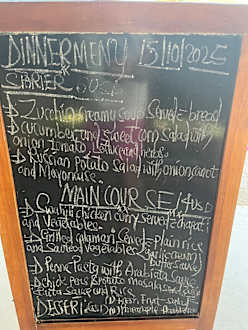 DINNER MENU 15/10/2025
STARTER
D Zucchini creamy soup Served bread
D cucumber and sweet corn Salad with
onion, tomato, Lettuce and herbs
D Russian potato Salad with onion carrot
and Mayonnaise
MAIN COURSE
D Swahili chicken curry served chapati
and Vegetables
D Grilled calamari Served plain rice
and Sauteed Vegetables
Butter Sauce
D Penne Pasta with Arabiata Sauce
D Chick Peas & Potato masala
DESSERT D Fresh Fruit Salad
D Pineapple